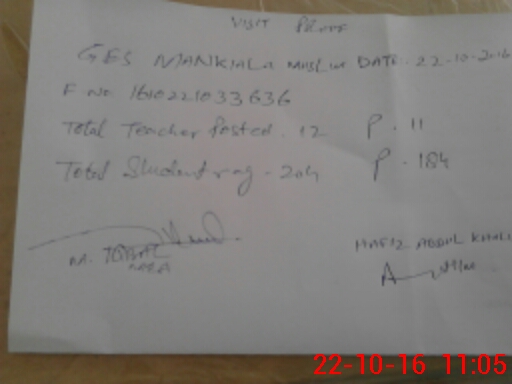 VISIT PROOF
GES MANKIALA MUSLIM DATE. 22-10-2016
F No. 1610221033636
Total Teacher Posted. 12 P. 11
Total Student rag - 204 P - 184
M. IQBAL
HAFIZ ABDUL KHALI
22-10-16 11:05